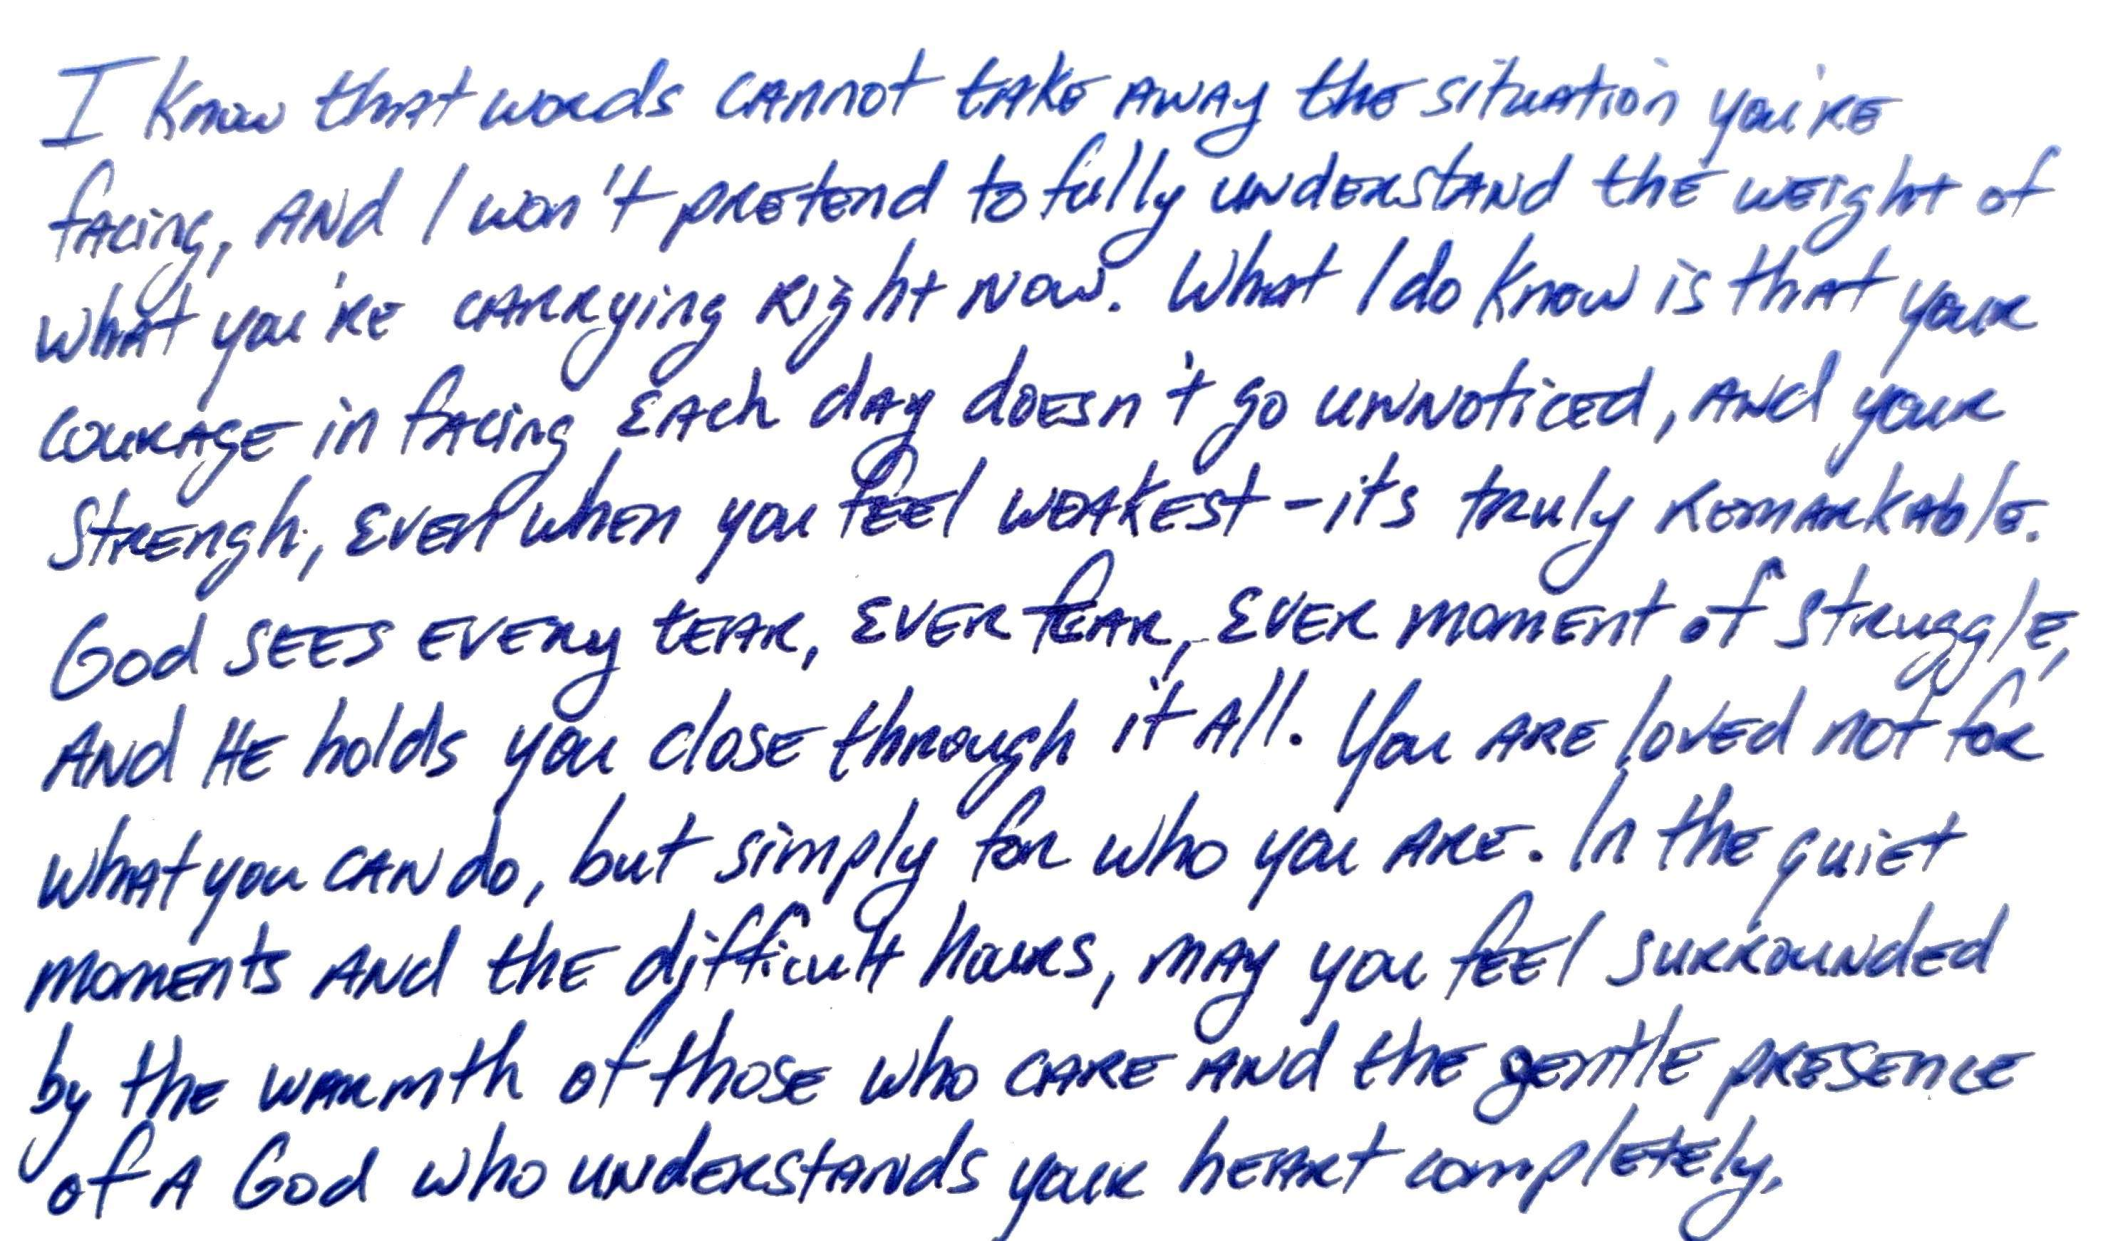 I know that words cannot take away the situation you're
facing, and I won't pretend to fully understand the weight of
what you're carrying right now. What I do know is that your
courage in facing each day doesn't go unnoticed, and your
strengh, even when you feel weakest - it's truly remarkable.
God sees every tear, ever fear, ever moment of struggle,
and He holds you close through it all. You are loved not for
what you can do, but simply for who you are. In the quiet
moments and the difficult hours, may you feel surrounded
by the warmth of those who care and the gentle presence
of a God who understands your heart completely.